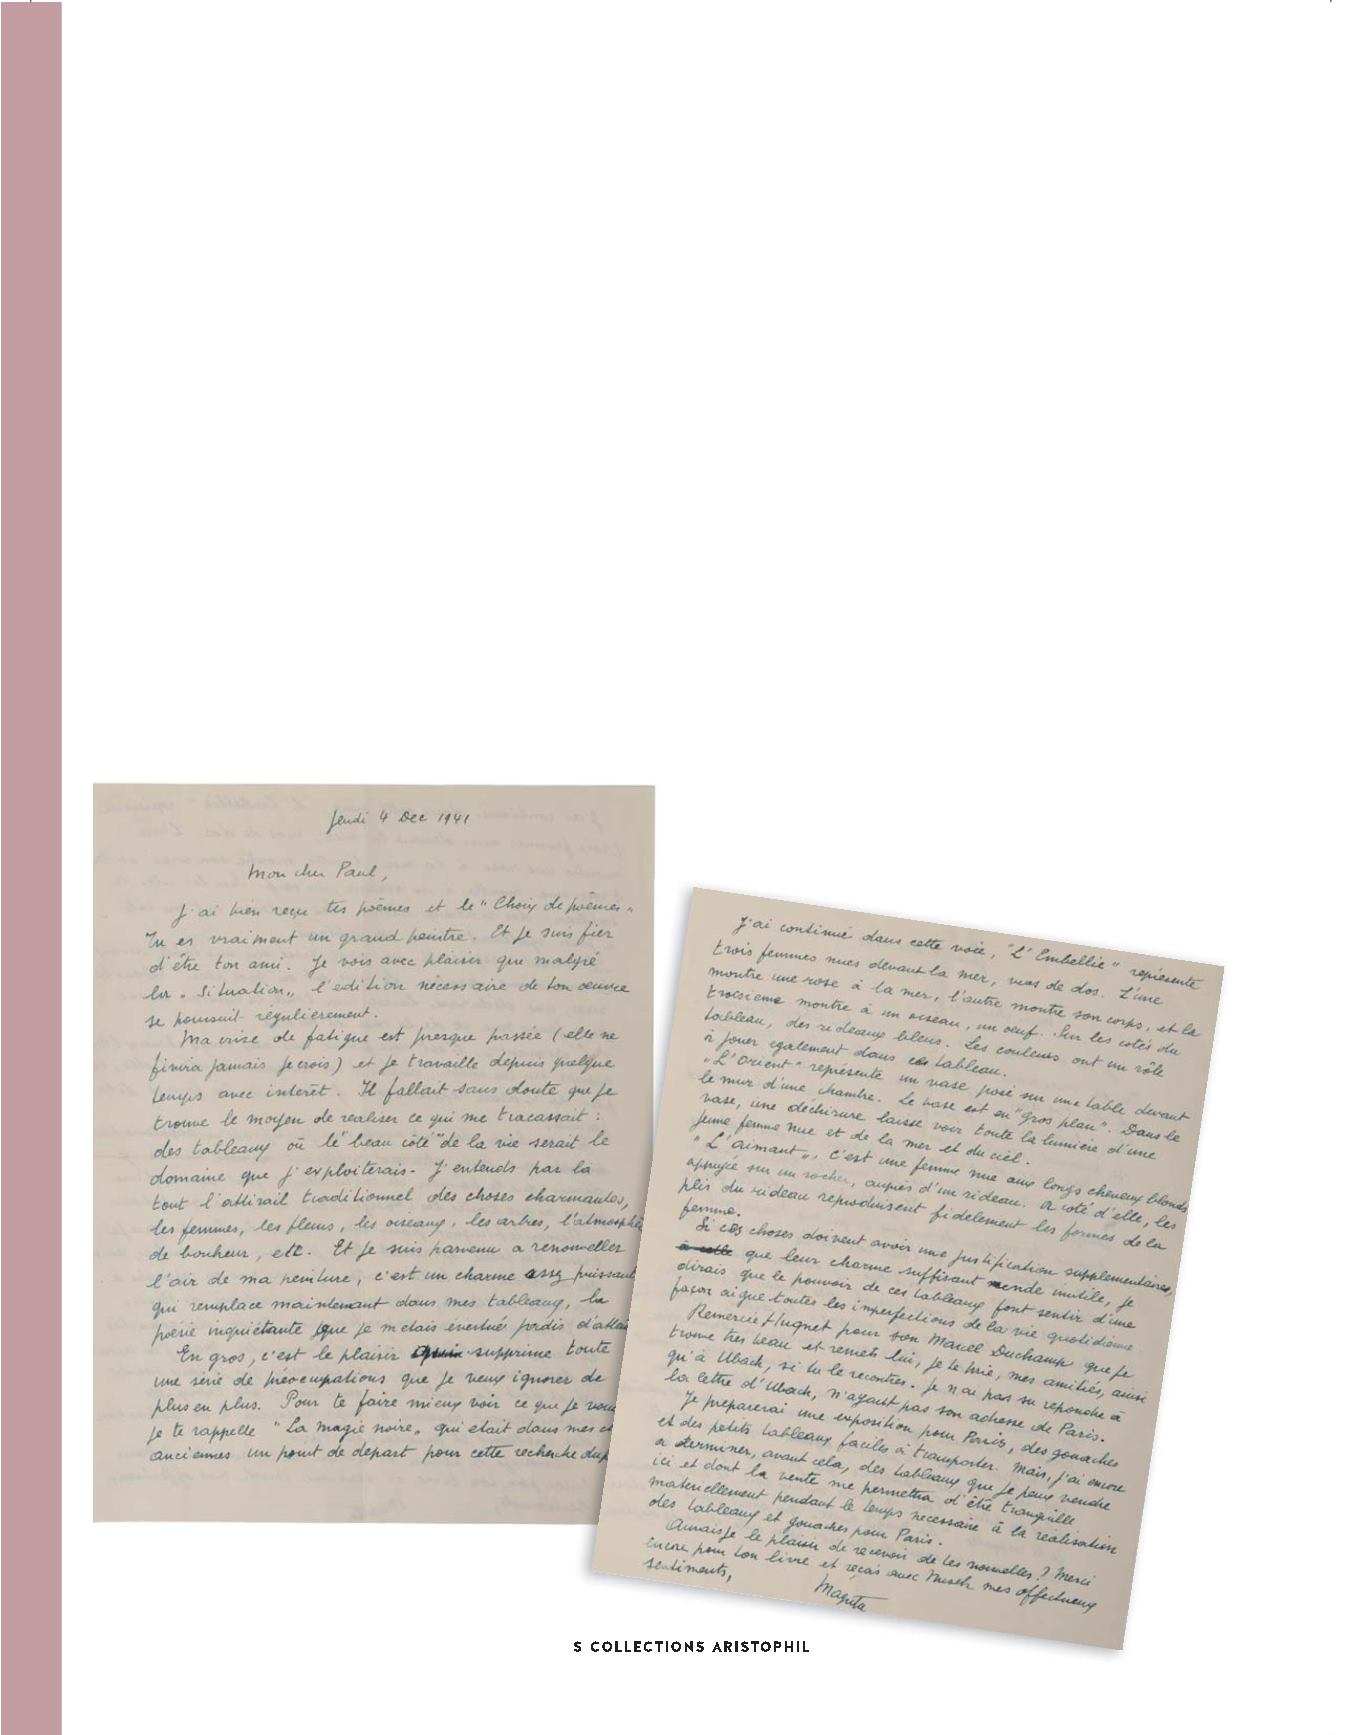 Jeudi 4 Dec 1941
Mon cher Paul,
J'ai bien reçu tes poèmes et le "Choix de poèmes"
Tu es vraiment un grand peintre. Et je suis fier
d'être ton ami. Je vois avec plaisir que malgré
la "Situation", l'édition nécessaire de ton œuvre
se poursuit régulièrement.
Ma crise de fatigue est presque passée (elle ne
finira jamais je crois) et je travaille depuis quelque
temps avec intérêt. Il fallait sans doute que je
trouve le moyen de réaliser ce qui me tracassait :
des tableaux où le "beau côté" de la vie serait le
domaine que j'exploiterais. J'entends par là
tout l'attirail traditionnel des choses charmantes,
les femmes, les fleurs, les oiseaux, les arbres, l'atmosphè
de bonheur, etc. Et je suis parvenu a renouveller
l'air de ma peinture, c'est un charme assez puissant
qui remplace maintenant dans mes tableaux, la
poésie inquiétante que je m'étais évertué jadis d'attei
En gros, c'est le plaisir supprime toute
une série de préocupations que je veux ignorer de
plus en plus. Pour te faire mieux voir ce que je veux
je te rappelle "La magie noire" qui était dans mes
anciennes un point de départ pour cette recherche du p
J'ai continué dans cette voie, "L'Embellie" représente
trois femmes nues devant la mer, vues de dos. L'une
montre une rose à la mer, l'autre montre son corps, et la
troisième montre à un oiseau, un oeuf. Sur les cotés du
tableau, des rideaux bleus. Les couleurs ont un rôle
à jouer également dans ce tableau.
"L'Orient" représente un vase posé sur une table devant
le mur d'une chambre. Le vase est en "gros plan". Dans le
vase, une déchirure laisse voir toute la lumière d'une
jeune femme nue et de la mer et du ciel.
"L'aimant", c'est une femme nue aux longs cheveux blonds
appuyée sur un rocher, auprès d'un rideau. A coté d'elle, les
plis du rideau reproduisent fidèlement les formes de la
femme.
Si ces choses doivent avoir une justification supplémentaire,
à celle que leur charme suffisant rende inutile, je
dirais que le pouvoir de ces tableaux font sentir d'une
façon aigue toutes les imperfections de la vie quotidienne
Remercie Hugnet pour son Marcel Duchamp que je
trouve très beau et remets lui, je te prie, mes amitiés, ainsi
qu'à Ubach, si tu le recontres. Je n'ai pas su répondre à
la lettre d'Ubach, n'ayant pas son adresse de Paris.
Je préparerai une exposition pour Paris, des gouaches
et des petits tableaux faciles à transporter. Mais, j'ai encore
a terminer, avant cela, des tableaux que je peux vendre
ici et dont la vente me permettra d'être tranquille
matériellement pendant le temps nécessaire à la réalisation
des tableaux et gouaches pour Paris.
Aurais je le plaisir de recevoir de tes nouvelles ? Merci
encore pour ton livre et reçois avec Nusch mes affectueux
sentiments,
Magritte
S COLLECTIONS ARISTOPHIL